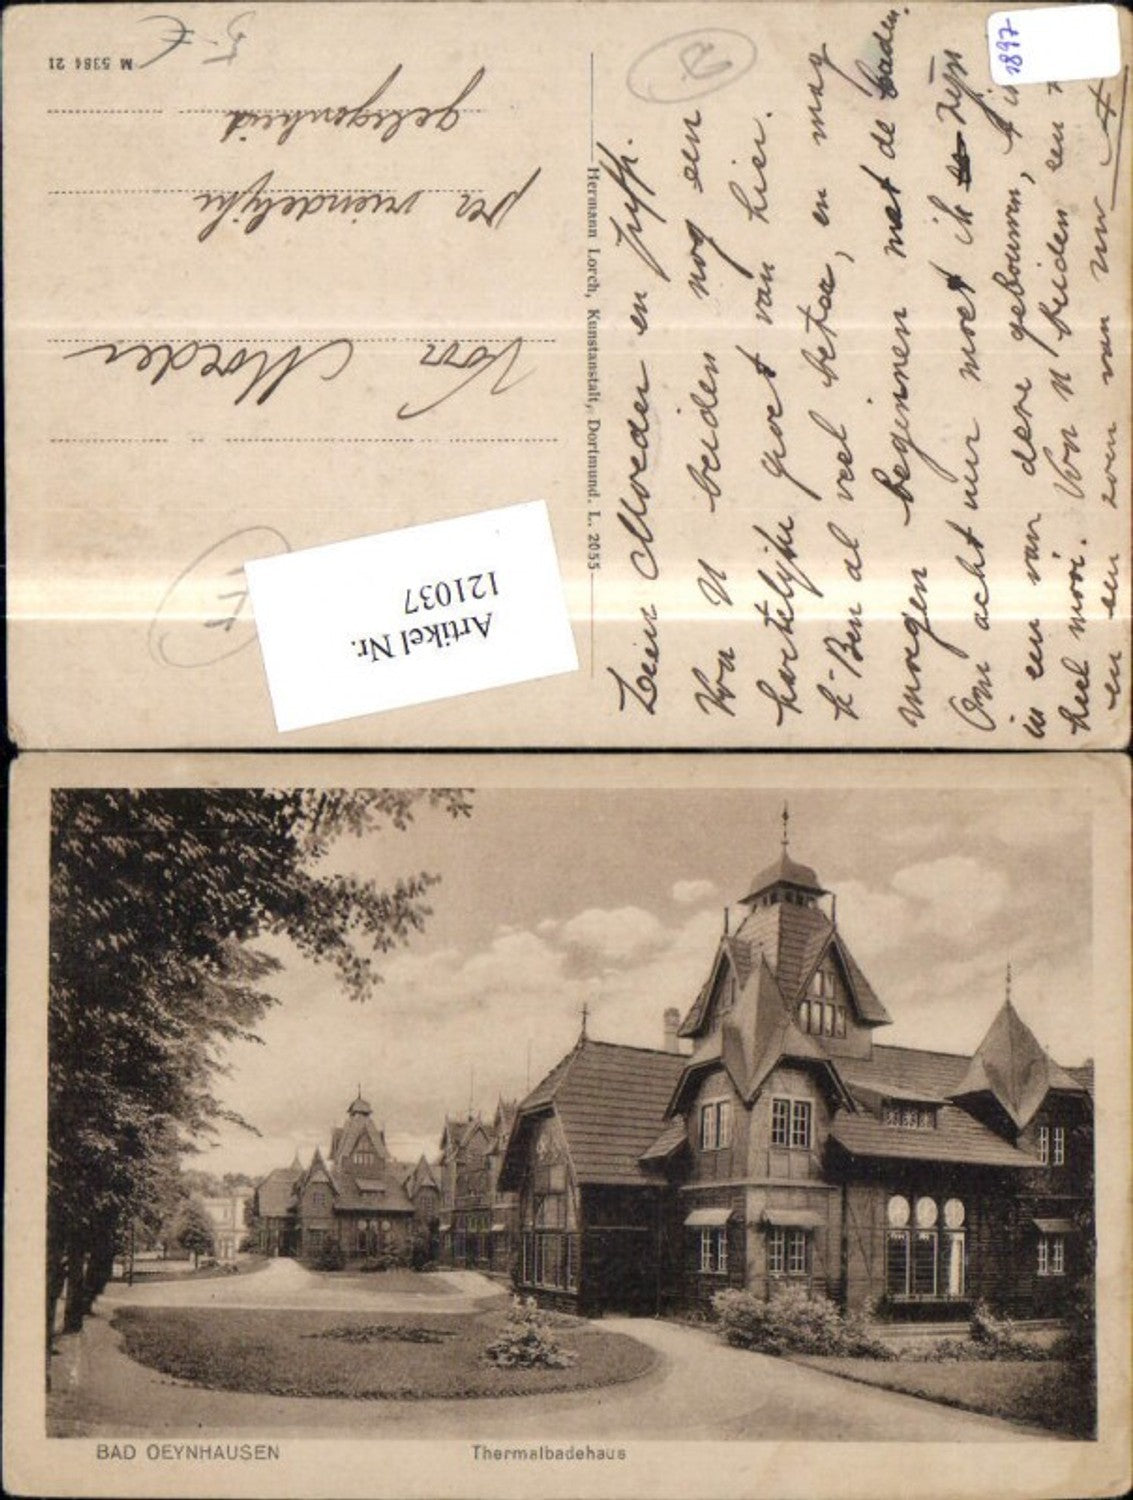 1897
5-€
M 5384 21
Voor Moeder
per vriendelijke
gelegenheid
Artikel Nr.
121037
Hermann Lorch, Kunstanstalt, Dortmund. L. 2055
Lieve Moeder en Juffr.
Voor U beiden nog een
hartelijke groet van hier.
k' Ben al veel beter, en mag
morgen beginnen met de baden.
Om acht uur moet ik zijn
in een van dere gebouwen,
heel mooi. Voor U beiden een
en een zoen van uw A
BAD OEYNHAUSEN
Thermalbadehaus